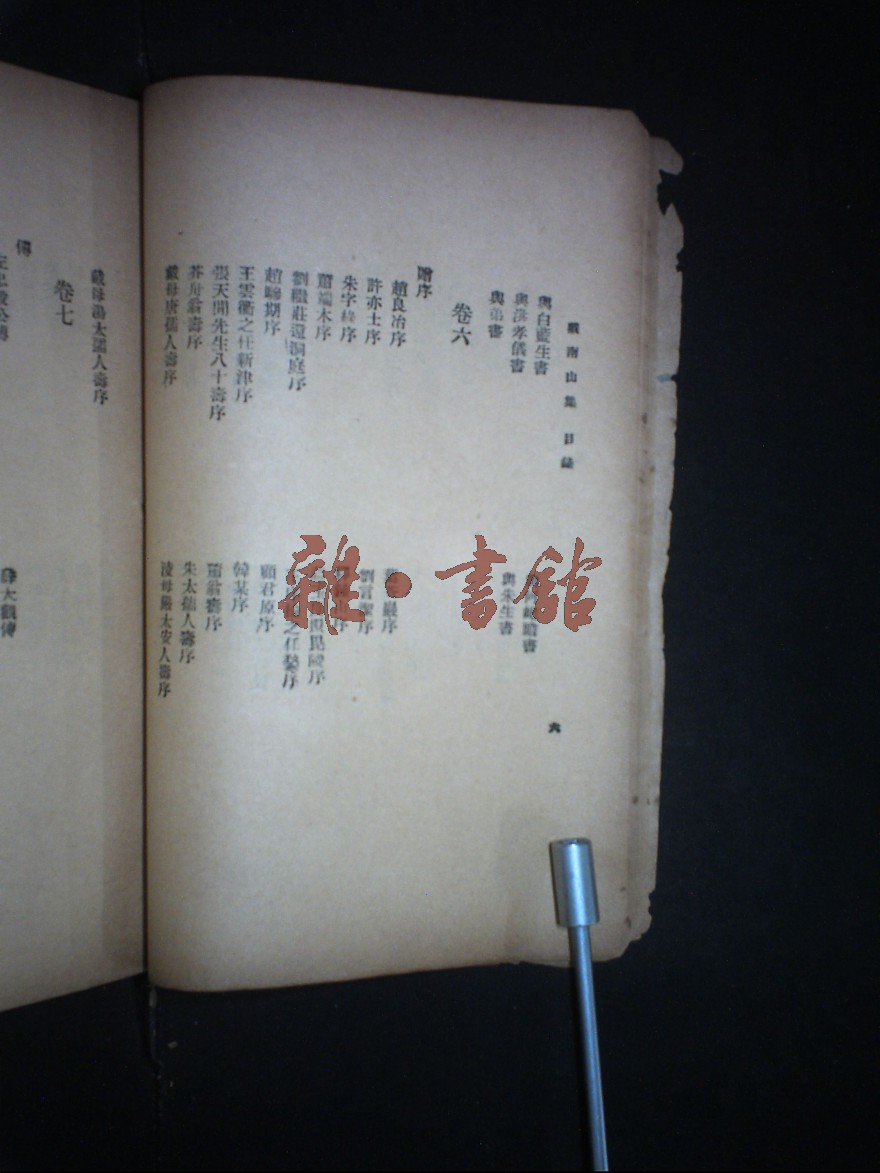 戴南山集 目錄
六
與白藍生書
與洪孝儀書
與朱生書
與弟書
卷六
贈序
趙良冶序
許亦士序
劉言潔序
朱字綠序
蕭端木序
劉繼莊還洞庭序
趙驂期序
顧君原序
王雲衢之任新津序
韓某序
張天閒先生八十壽序
蕭翁壽序
芥舟翁壽序
朱太孺人壽序
戴母唐孺人壽序
淩母嚴太安人壽序
戴母湯太孺人壽序
卷七
傳
左忠毅公傳
薛大觀傳
雜·書館